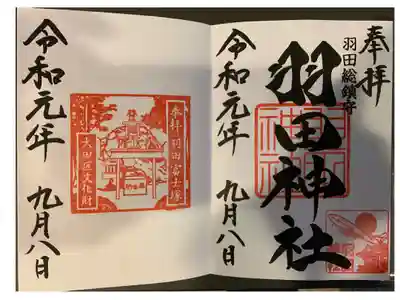 奉拝
羽田総鎮守
羽田神社
令和元年 九月八日
奉拝 羽田富士塚
大田区文化財
令和元年 九月八日